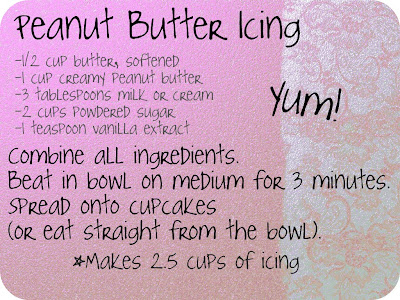 Peanut Butter Icing
-1/2 cup butter, softened
-1 cup creamy peanut butter
-3 tablespoons milk or cream
-2 cups powdered sugar
-1 teaspoon vanilla extract
Yum!
Combine all ingredients.
Beat in bowl on medium for 3 minutes.
Spread onto cupcakes
(or eat straight from the bowl).
*Makes 2.5 cups of icing